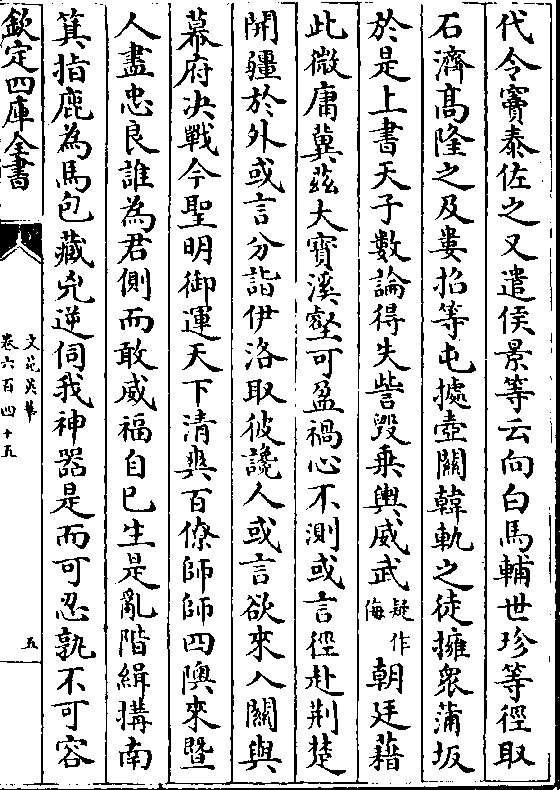 代令竇泰佐之又遣侯景等云向白馬輔世珍等徑取
石濟髙隆之及婁招等屯據壺關韓軌之徒擁衆蒲坂
於是上書天子數論得失訾毀乗輿威武疑作侮朝廷藉
此微庸冀兹大寳溪壑可盈禍心不測或言徑赴荆楚
開疆於外或言分詣伊洛取彼讒人或言欲來入關與
幕府决戰今聖明御運天下清奭百僚師師四隩來暨
人盡忠良誰為君側而敢威福自已生是亂階緝搆南
箕指鹿為馬包藏凶逆伺我神器是而可忍孰不可容
欽定四庫全書
文苑英華
卷六百四十五
五